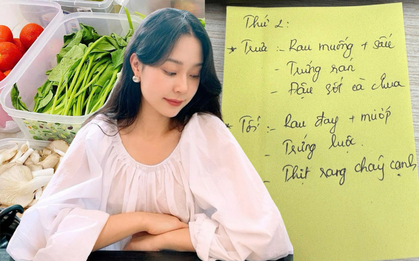 Thứ 2:
* Trưa: - Rau muống + sấu
- Trứng rán
- Đậu sốt cà chua
* Tối: - Rau đay + mướp
- Trứng luộc.
- Thịt rang cháy cạnh